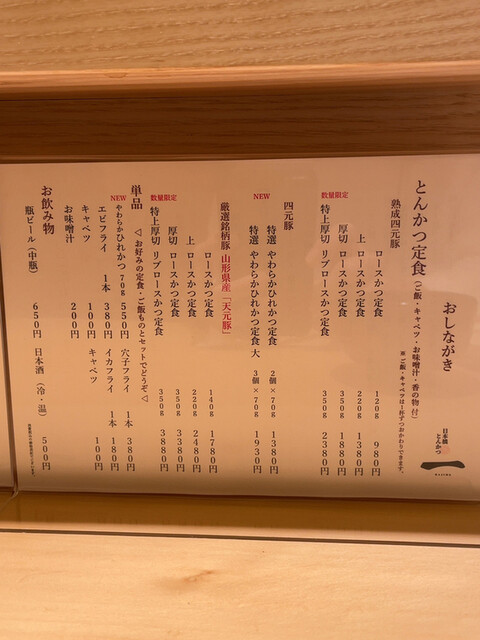 おしながき
日本橋
とんかつ
一
HAJIME
とんかつ定食（ご飯・キャベツ・お味噌汁・香の物 付）
※ご飯・キャベツは1杯ずつおかわりできます。
熟成四元豚
ロースかつ定食 120g 980円
上 ロースかつ定食 220g 1380円
厚切 ロースかつ定食 350g 1880円
数量限定
特上厚切 リブロースかつ定食 350g 2380円
四元豚
特選 やわらかひれかつ定食 2個×70g 1380円
NEW
特選 やわらかひれかつ定食 大 3個×70g 1930円
厳選銘柄豚 山形県産「天元豚」
ロースかつ定食 140g 1780円
上 ロースかつ定食 220g 2480円
厚切 ロースかつ定食 350g 3380円
数量限定
特上厚切 リブロースかつ定食 350g 3880円
単品 ◁ お好みの定食・ご飯ものとセットでどうぞ ◁
NEW
やわらかひれかつ 70g 550円 穴子フライ 1本 380円
エビフライ 1本 380円 イカフライ 1本 180円
キャベツ 100円 キャベツ 100円
お味噌汁 200円
お飲み物
瓶ビール（中瓶） 650円 日本酒（冷・温） 500円